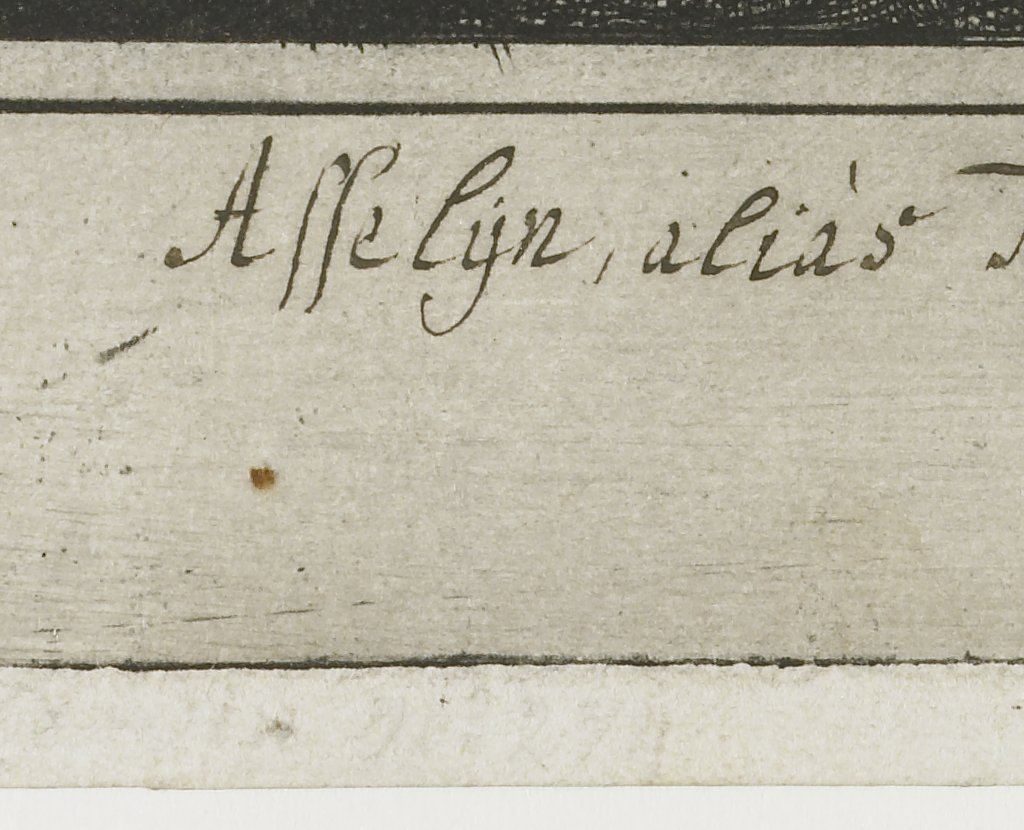 Asselyn, aliàs